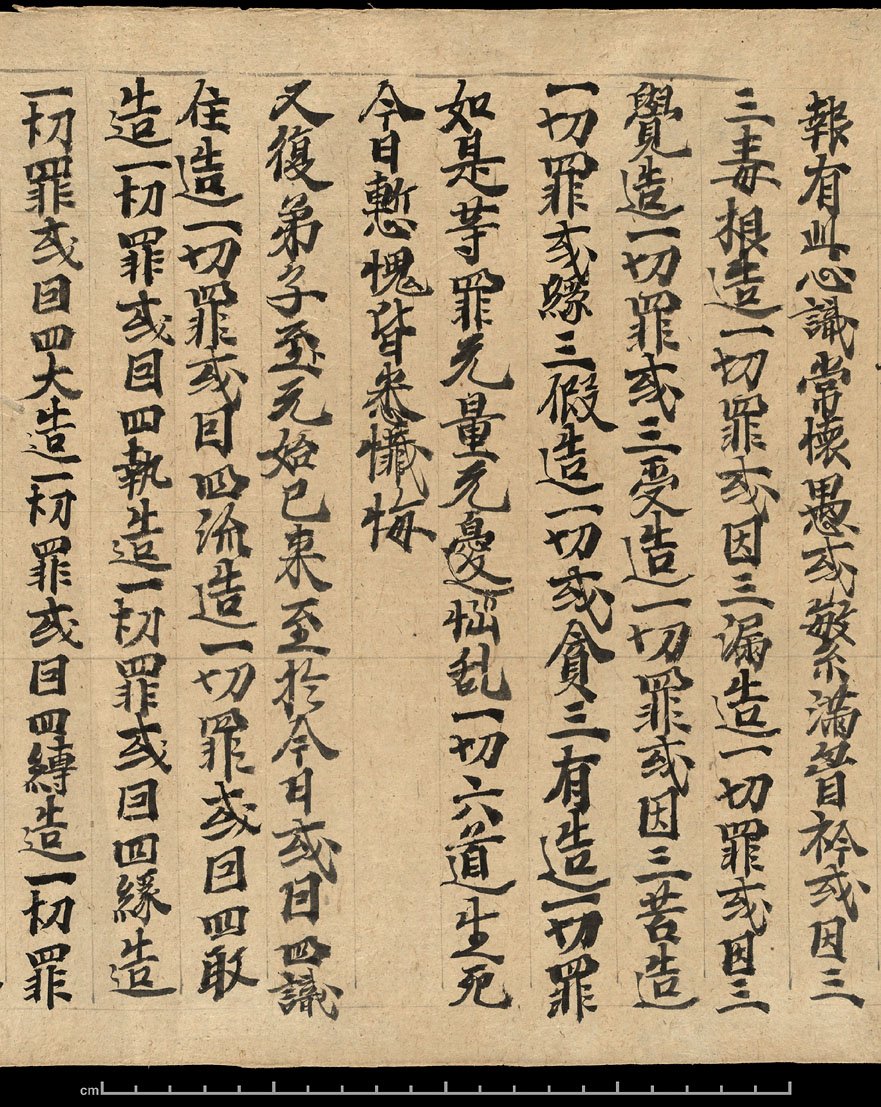 報有此心識常懷愚或繫滿胷衿或因三
三毒根造一切罪或因三漏造一切罪或因三
覺造一切罪或三受造一切罪或因三苦造
一切罪或緣三假造一切或貪三有造一切罪
如是等罪无量无邊惱乱一切六道生死
今日慙愧皆悉懺悔
又復弟子至无始已来至於今日或因四識
住造一切罪或因四流造一切罪或因四取
造一切罪或因四執造一切罪或因四緣造
一切罪或因四大造一切罪或因四縛造一切罪
cm